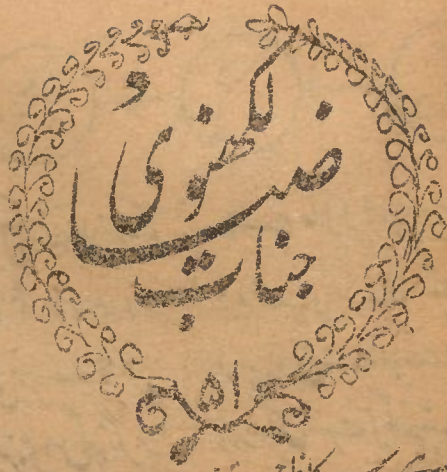 جناب
ضیا
لکھنوی
۵۱